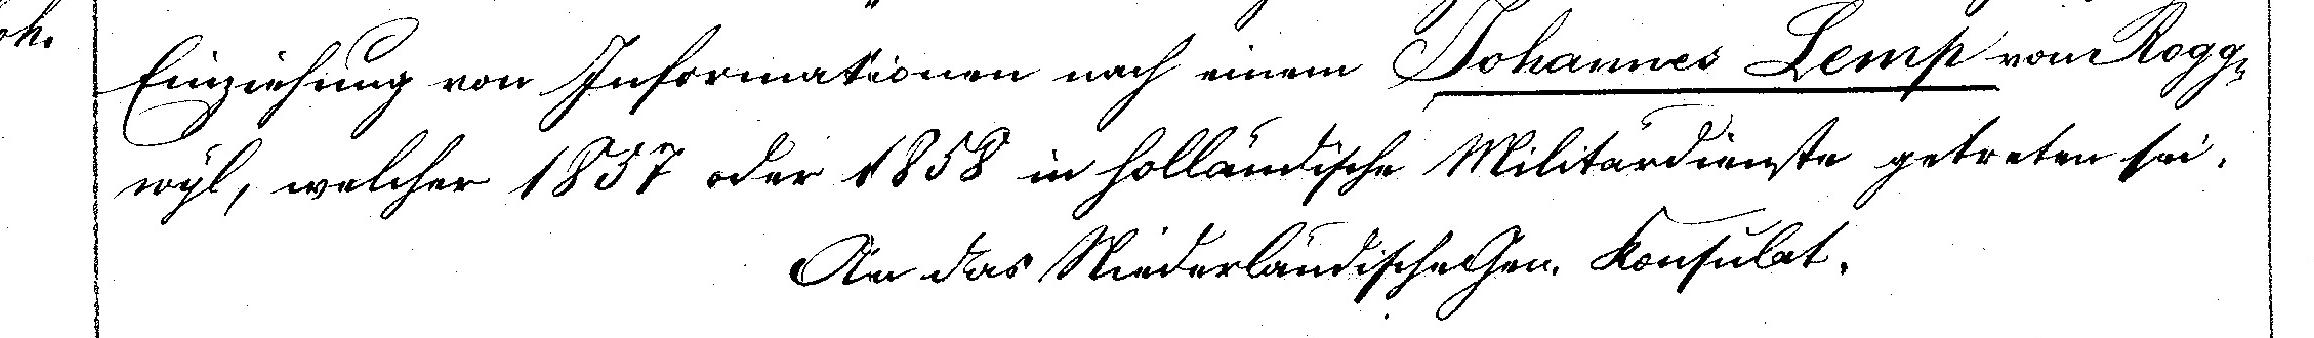 oh.
Einziehung von Informationen nach einem Johannes Lemp von Rogg-
wyl, welcher 1857 oder 1858 in holländische Militärdienste getreten sei.
An das Niederländische Gen. Konsulat.